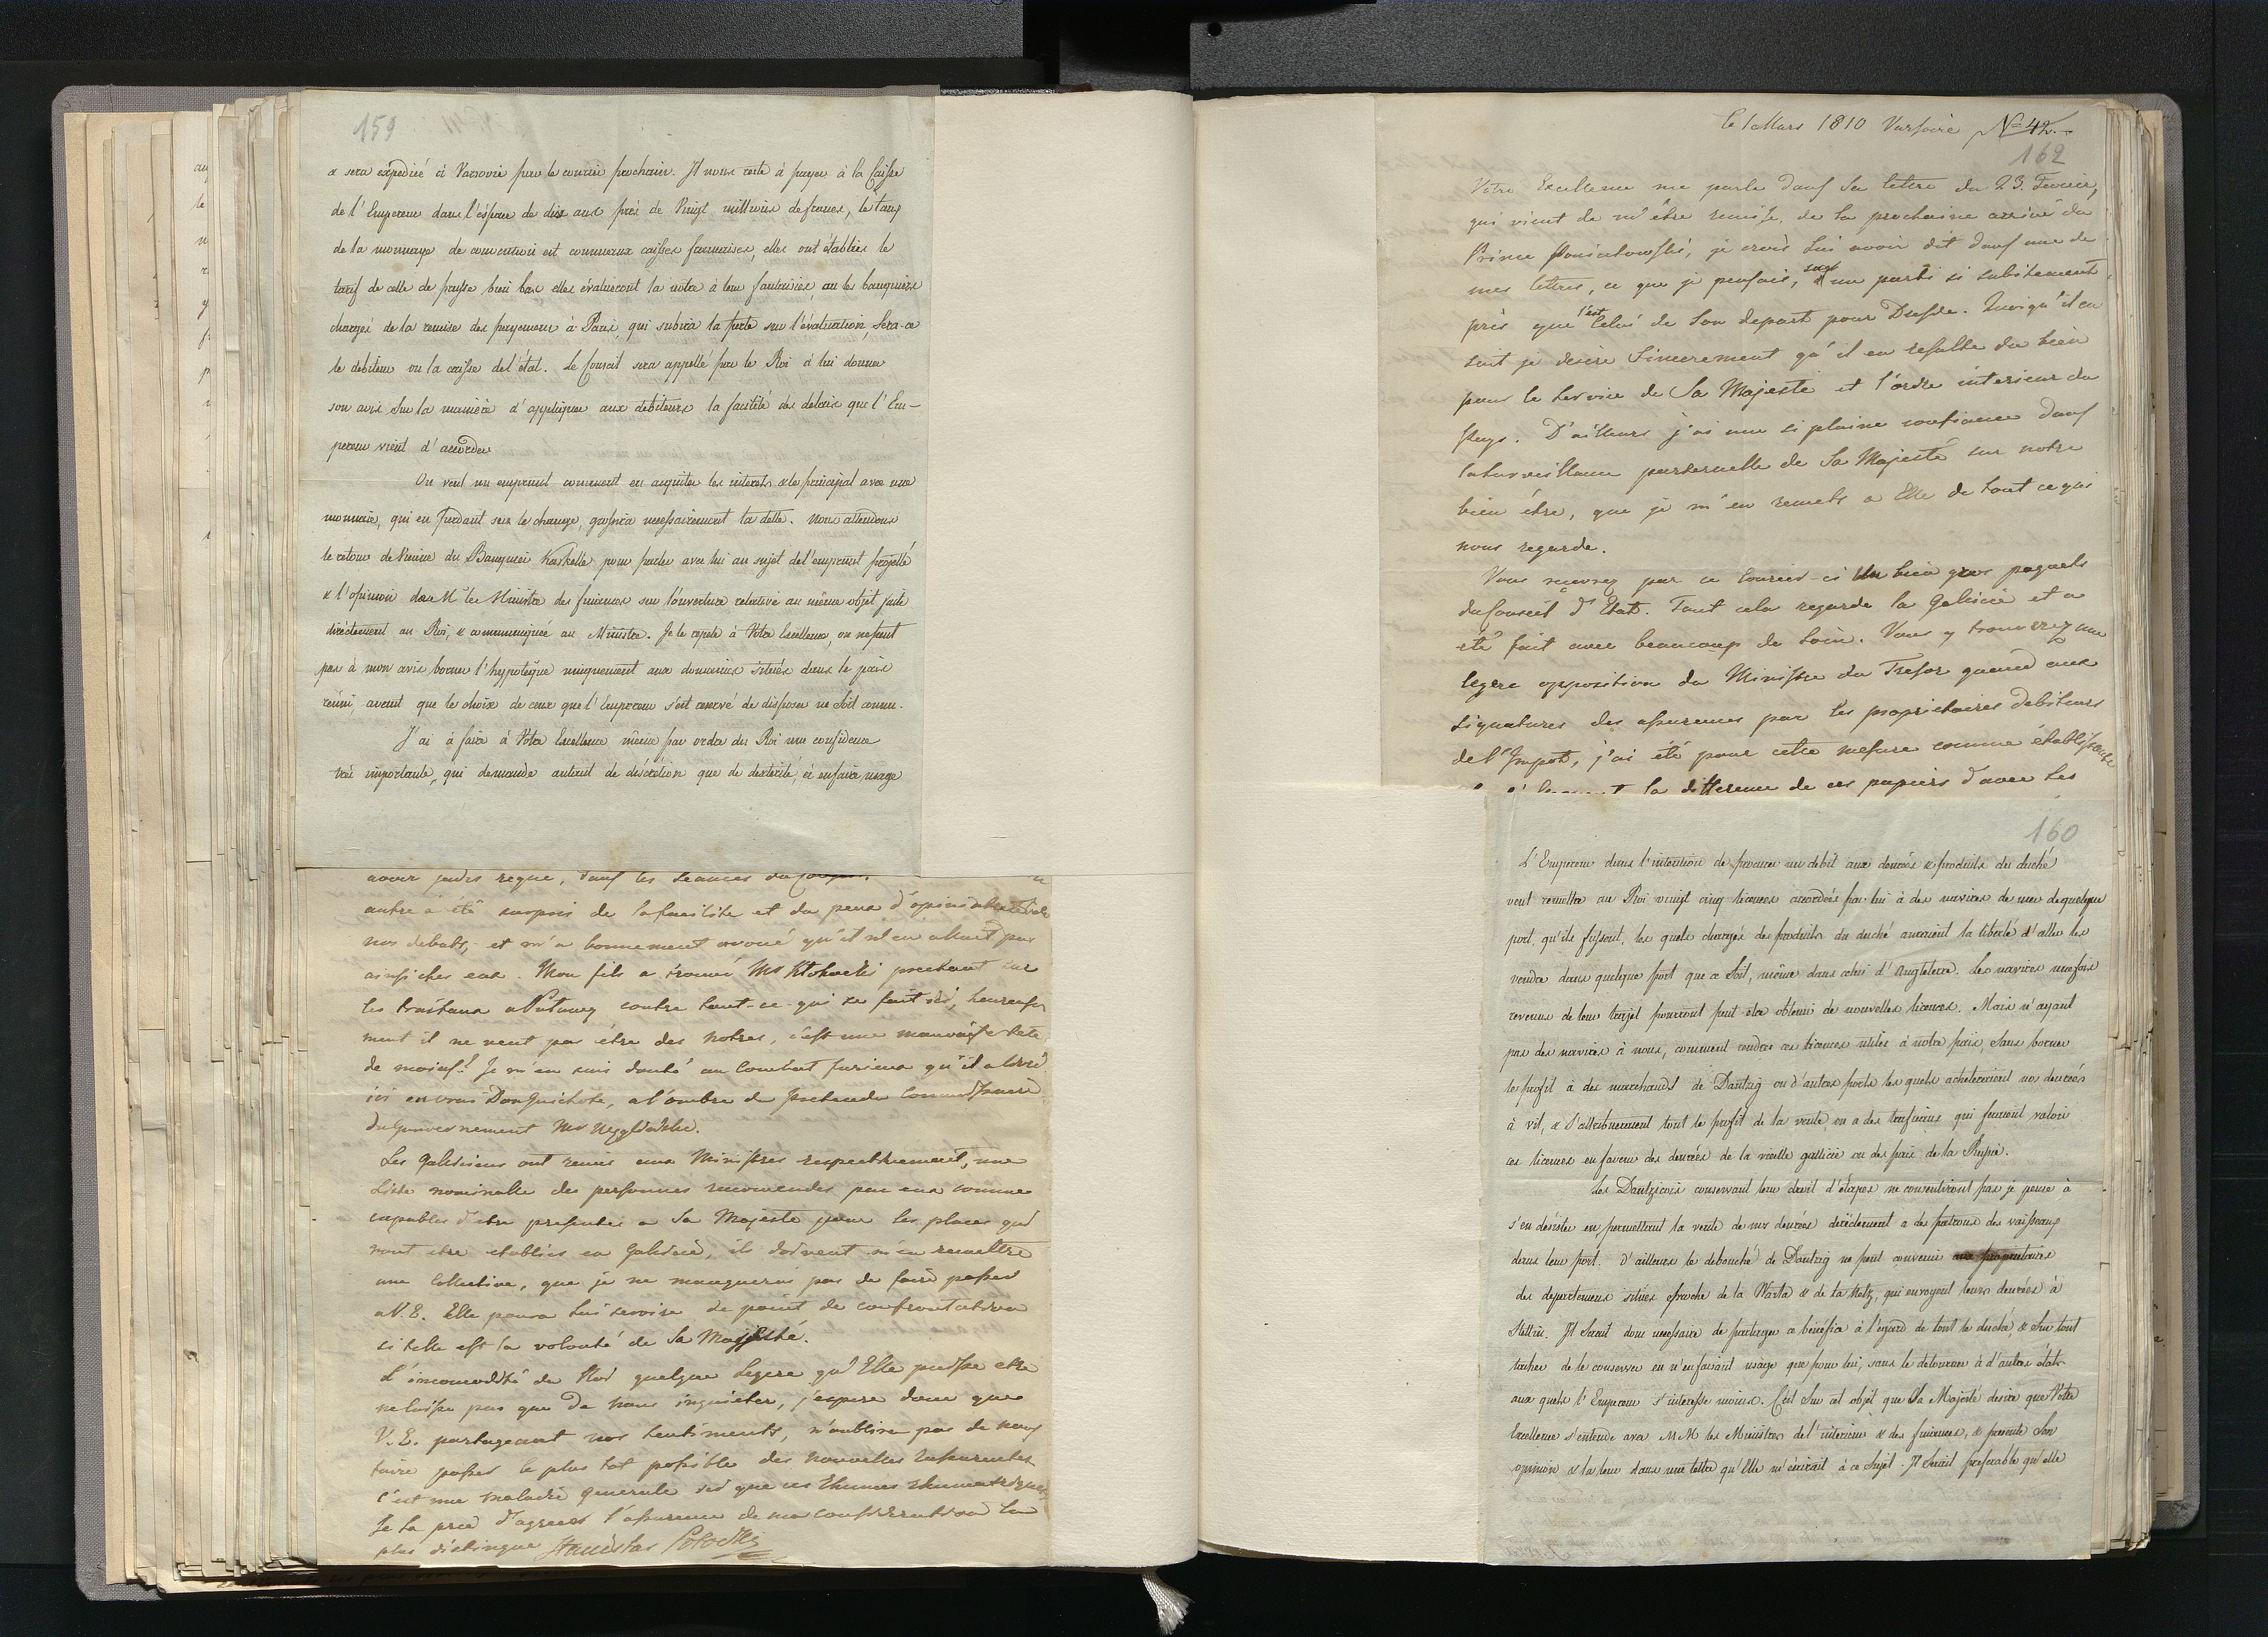 159
& sera expediée à Varsovie par le courier prochain. Il nous reste à payer à la Caisse
de l'Empereur dans l'éspace de dix ans près de Vingt millions de francs, le taux
de la monnaye de convention est connu aux caisses françaises, elles ont établies le
tarif de celle de Prusse bien bas elles évalueront la nôtre à leur fantaisie, ou les banquiers
chargés de la remise des payemens à Paris, qui subira la perte sur l'évaluation, sera-ce
le debiteur ou la caisse de l'état. Le Conseil sera appellé par le Roi à lui donner
son avis sur la manière d'appliquer aux debiteurs la facilité des delais que l'Em-
pereur vient d'accorder
On veut un emprunt comment en aquiter les interets & le principal avec une
monnaie, qui en perdant sur le change, grossira necessairement la dette. Nous attendons
le retour de Vienne du Banquier Kaskelle pour parler avec lui au sujet de l'emprunt projetté
& l'opinion de M. le Ministre des finances sur l'ouverture relative au même objet faite
directement au Roi, & communiquée au Ministre. Je le repete à Votre Excellence, on ne peut
pas à mon avis borner l'hypoteque uniquement aux domaines situés dans le païs
réuni, avant que le choix de ceux que l'Empereur s'est reservé de disposer ne soit connu.
J'ai à faire à Votre Excellence même par ordre du Roi une confidence
très importante, qui demande autant de discrétion que de dexterité, à en faire usage
avoir jadis regné, dans les seances du
autre a été surpris de la facilité et du peu d'opiniatreté de
nos debats, et m'a bonnement avoué qu'il n'en allait pas
ainsi chez eux. Mon fils a trouvé Mr prechant sur
les traitaux a Pulawy contre tout-ce-qui se fait ici, heureuse
ment il ne veut pas être des notres, c'est une mauvaise tete
de moins! Je m'en suis douté au Combat furieux qu'il a livré
ici en vrai Don Quichote, a l'ombre du pretendu Commissaire
du Gouvernement Mr
Les Galiciens ont remis aux Ministres respectivement, une
Liste nominale des personnes recomendés par eux comme
capables d'etre presentés a Sa Majesté pour les places qui
vont etre etablies en Galicie, ils doivent m'en remettre
une Collective, que je ne manquerai pas de faire passer
a V.E. Elle poura lui servir de point de confrontation
si telle est la volonté de Sa Majesté.
L'incomodité du Roi quelque legere qu'Elle puisse etre
ne laisse pas que de nous inquieter, j'espere donc que
V.E. partageant nos sentiments, n'oubliera pas de nous
faire passer le plus tot possible des nouvelles rassurantes
C'est une maladie generale ici que ces Rhumes rhumatiques
Je la prie d'agreer l'assurance de ma consideration la
plus distinguée Stanislas Potocki
Le 1 Mars 1810 Varsovie No 42.
162
Votre Excellence me parle dans sa lettre du 23. Fevrier,
qui vient de m'être remise, de la prochaine arrivé du
Prince Poniatowski, je crois lui avoir dit dans une de
mes lettres, ce que je pensais, sur un parti si subitement
pris que l'est celui de son depart pour Dresde. Quoiqu'il en
soit je desire sincerement qu'il en resulte du bien
pour le service de Sa Majesté et l'ordre interieur du
Pays. D'ailleurs j'ai une si pleine confiance dans
la surveillance paternelle de Sa Majesté sur notre
bien être, que je m'en remets a Elle de tout ce qui
nous regarde.
Vous recevrez par ce Courier-ci un bien gros paquets
du Conseil d'Etat. Tout cela regarde la Galicie et a
été fait avec beaucoup de soin. Vous y trouverez une
legere opposition du Ministre du Tresor quand aux
signatures des assurences par les proprietaires debiteurs
de l'Impot, j'ai été pour cette mesure comme établissante
la difference de ces papiers d'avec les
160
L'Empereur dans l'intention de procurer un debit aux denrées & produits du duché
veut remettre au Roi vingt cinq licences accordées par lui à des navires de mer de quelque
port, qu'ils fussent, les quels chargés des produits du duché auraient la liberté d'aller les
vendre dans quelque port que ce soit, même dans celui d'Angleterre. Les navires une fois
revenus de leur trajet pourront peut être obtenir de nouvelles licences. Mais n'ayant
pas des navires à nous, comment rendre ces licences utiles à nôtre païs, sans borner
le profit à des marchands de Dantzig ou d'autres ports les quels acheteraient nos denrées
à vil, & s'attribueraient tout le profit de la vente, ou a des trafiquans qui feraient valoir
ces licences en faveur des denrées de la vieille gallicie ou des païs de la Prusse.
Les Dantzicois conservant leur droit d'étapes ne consentiront pas je pense à
s'en désister en permettant la vente de nos denrées directement a des patrons des vaisseaux
dans leur port. d'ailleurs le debouché de Dantzig ne peut convenir aux proprietaires
des departemens situés proche de la Warta & de la Netz, qui envoyent leurs denrées à
Stettin. Il serait donc necessaire de partager ce benefice à l'égard de tout le duché, & sur tout
tacher de le conserver en n'en faisant usage que pour lui, sans le detourner à d'autres états
aux quels l'Empereur s'interesse moins. C'est sur cet objet que Sa Majesté desire que Votre
Excellence s'entende avec MM les Ministres de l'interieur & des finances, & presente son
opinion & la leur dans une lettre qu'Elle m'écrirait à ce sujet. Il serait preferable qu'elle